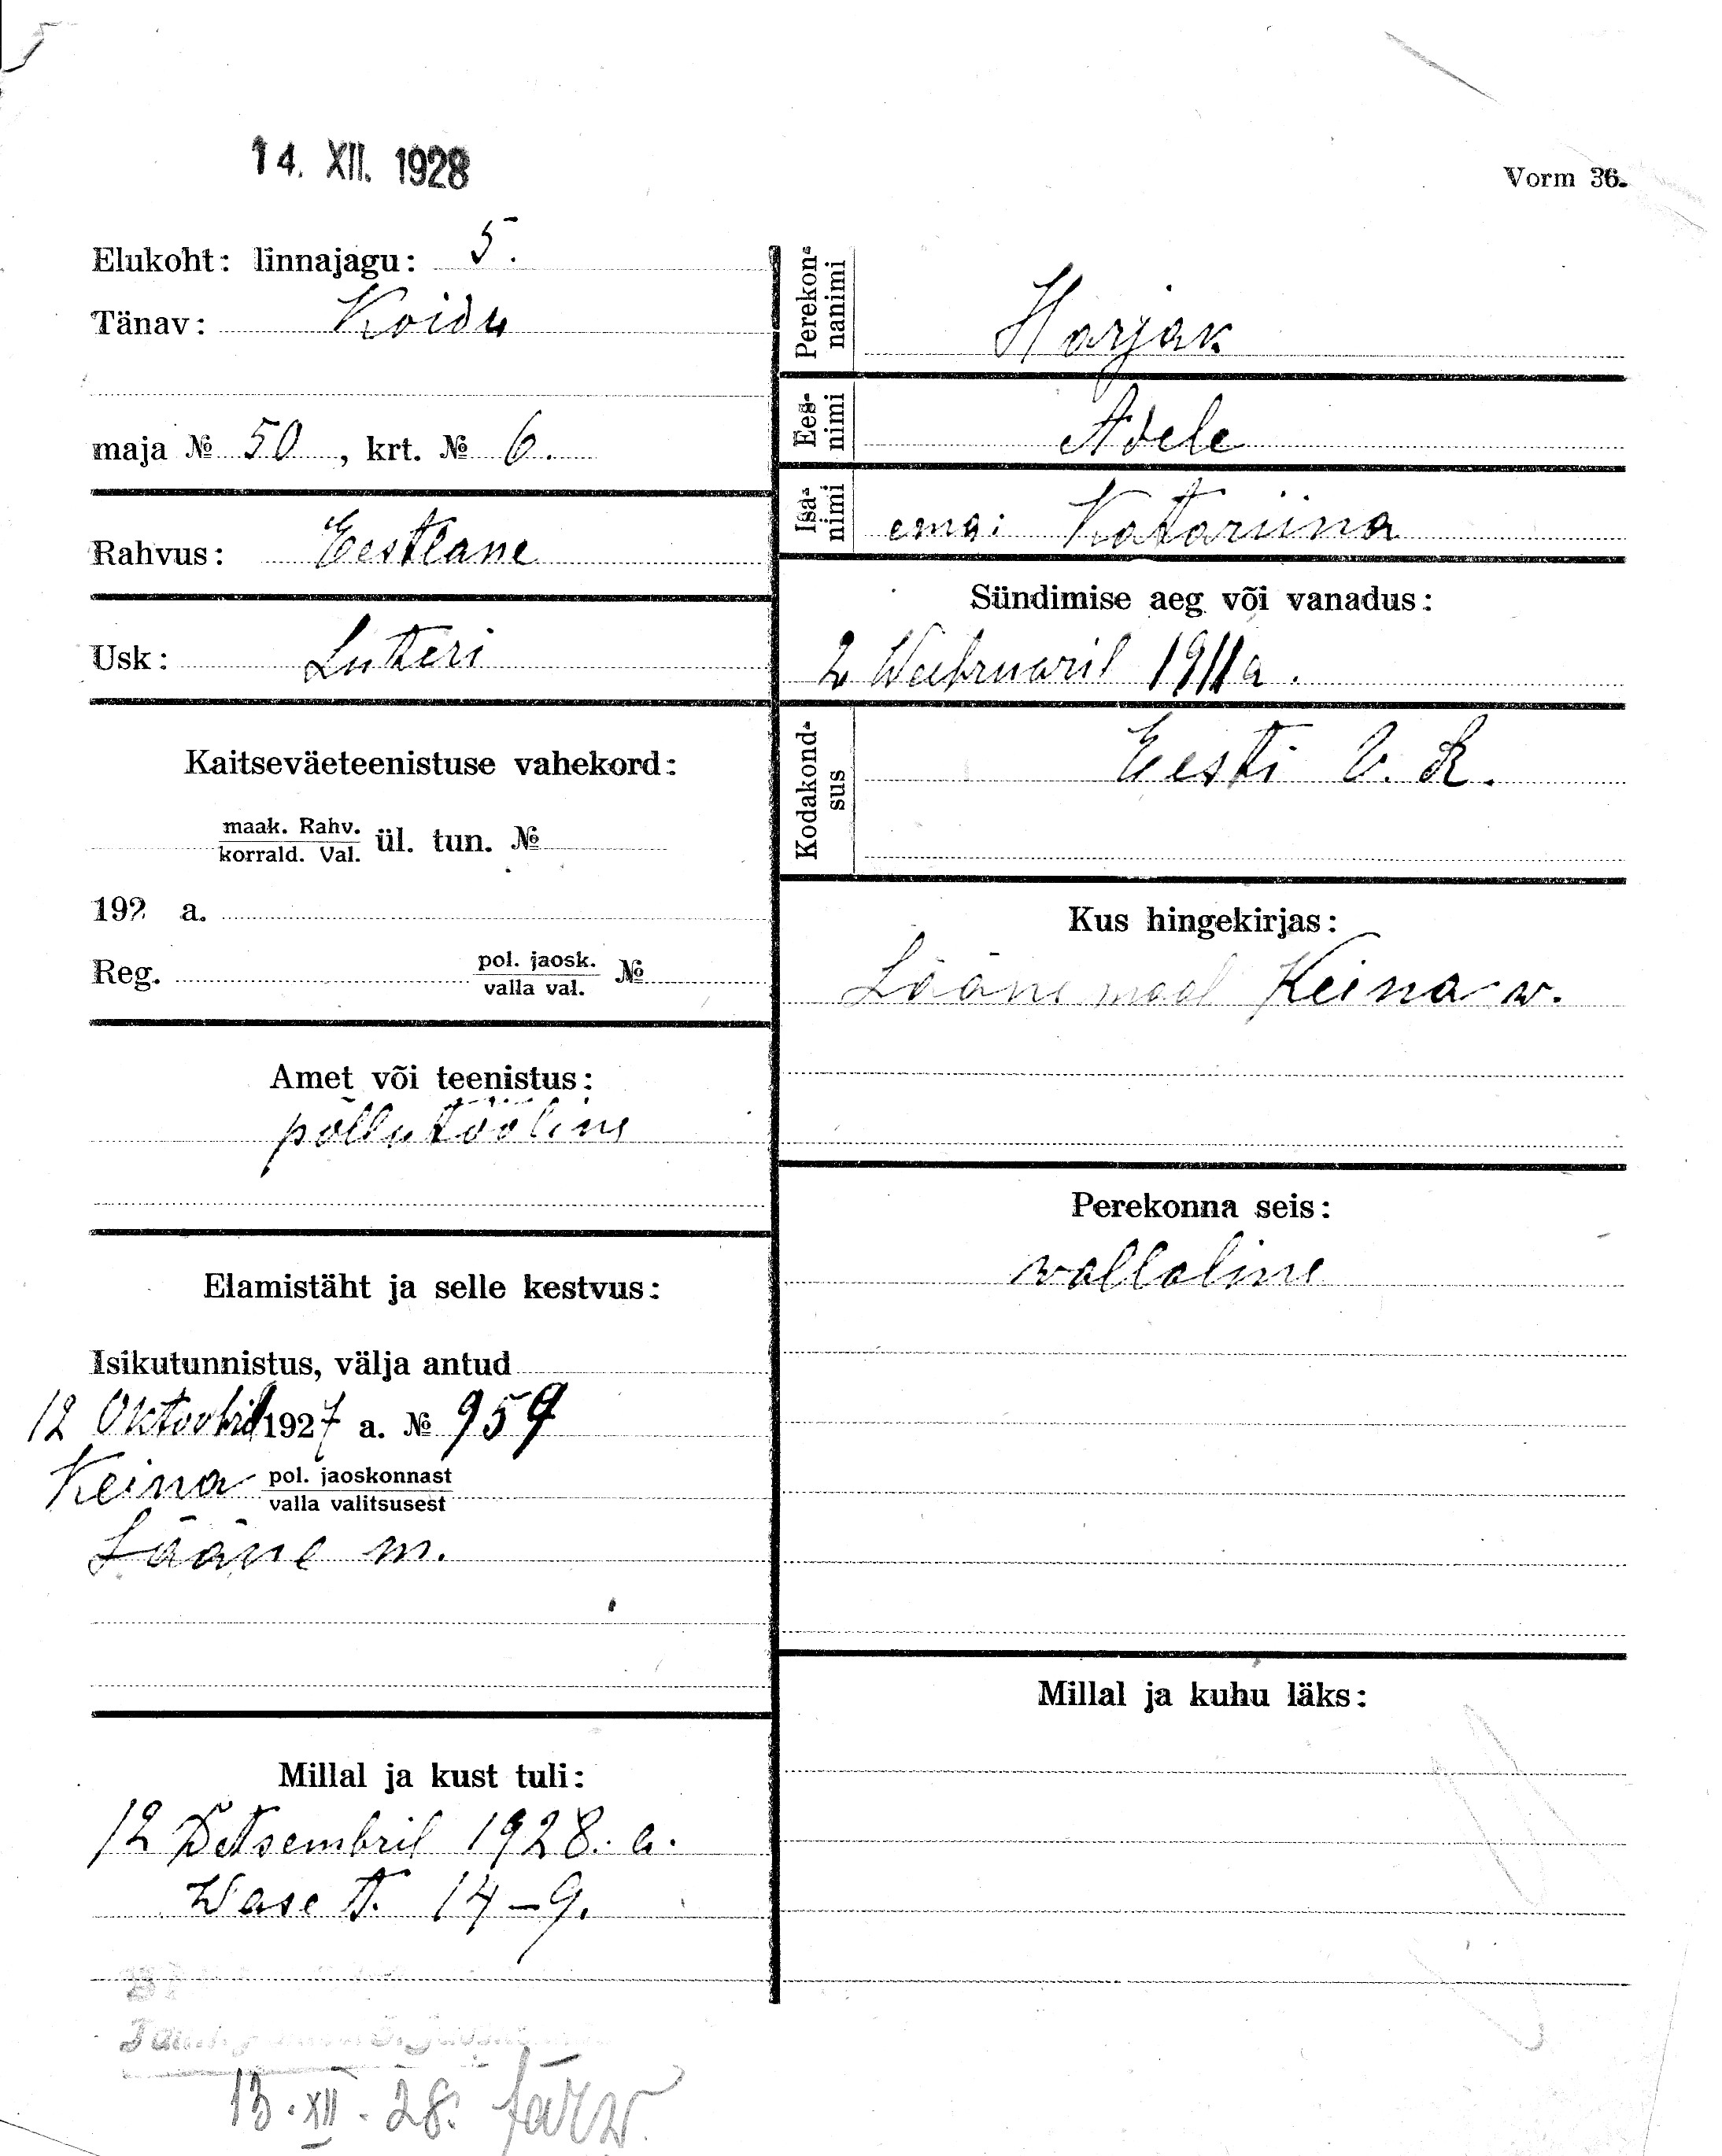 14. XII. 1928
Vorm 36.
Elukoht: linnajagu: 5.
Tänav: Koidu
maja № 50, krt. № 6.
Rahvus: Eestlane
Usk: Luteri
Kaitseväeteenistuse vahekord:
maak. Rahv.
korrald. Val. ül. tun. №
192 a.
Reg. pol. jaosk.
valla val. №
Amet või teenistus:
põllutööline
Elamistäht ja selle kestvus:
Isikutunnistus, välja antud
12 Oktoobril 1927 a. № 959
Keina pol. jaoskonnast
valla valitsusest
Lääne m.
Millal ja kust tuli:
12 Detsembril 1928. a.
Wase t. 14-9.
13. XII. 28.
Perekon-
nanimi
Harjak
Ees-
nimi
Adele
Isa-
nimi
ema: Katariina
Sündimise aeg või vanadus:
2 Weebruaril 1911 a.
Kodakond-
sus
Eesti V. K.
Kus hingekirjas:
Läänemaal Keina w.
Perekonna seis:
wallaline
Millal ja kuhu läks: